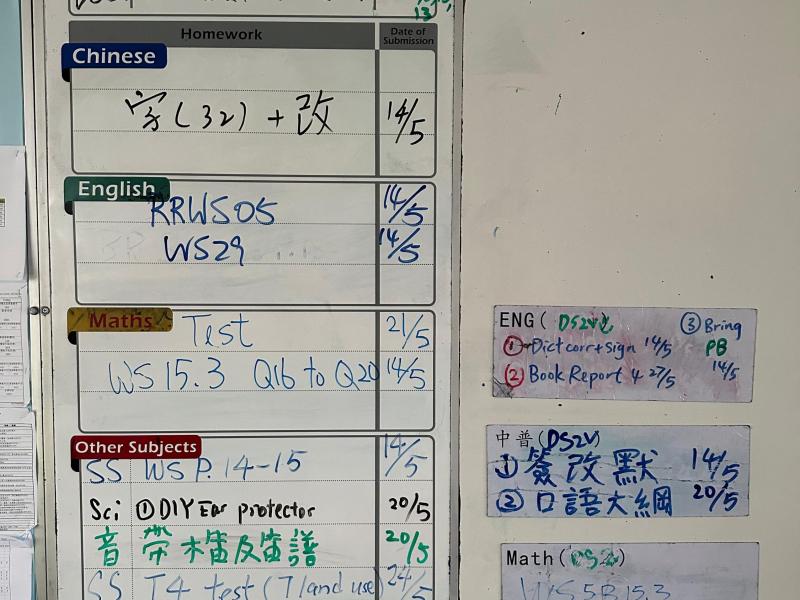 13
Homework
Date of Submission
Chinese
字(32) + 改 14/5
English
RRWS05 14/5
WS29 14/5
Maths
Test 21/5
WS 15.3 Q16 to Q20 14/5
Other Subjects
SS WS P. 14-15 14/5
Sci ①DIY Ear protector 20/5
音 帶木笛及笛譜 20/5
SS T4 test (Tland use) 24/5
ENG( DS2V
① Dict corr+sign 14/5
② Book Report 4 27/5
③ Bring PB 14/5
中普(DS2V)
① 簽改默 14/5
② 口語大綱 20/5
Math(DS2)
WS 5B 15.3